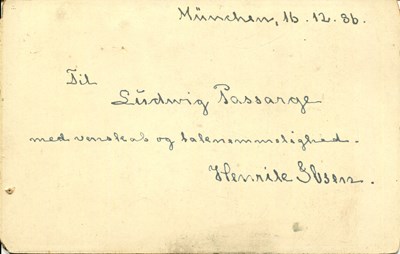 München, 16.12.86.
Til
Ludwig Passarge
med venskab og taknemmelighed.
Henrik Ibsen.